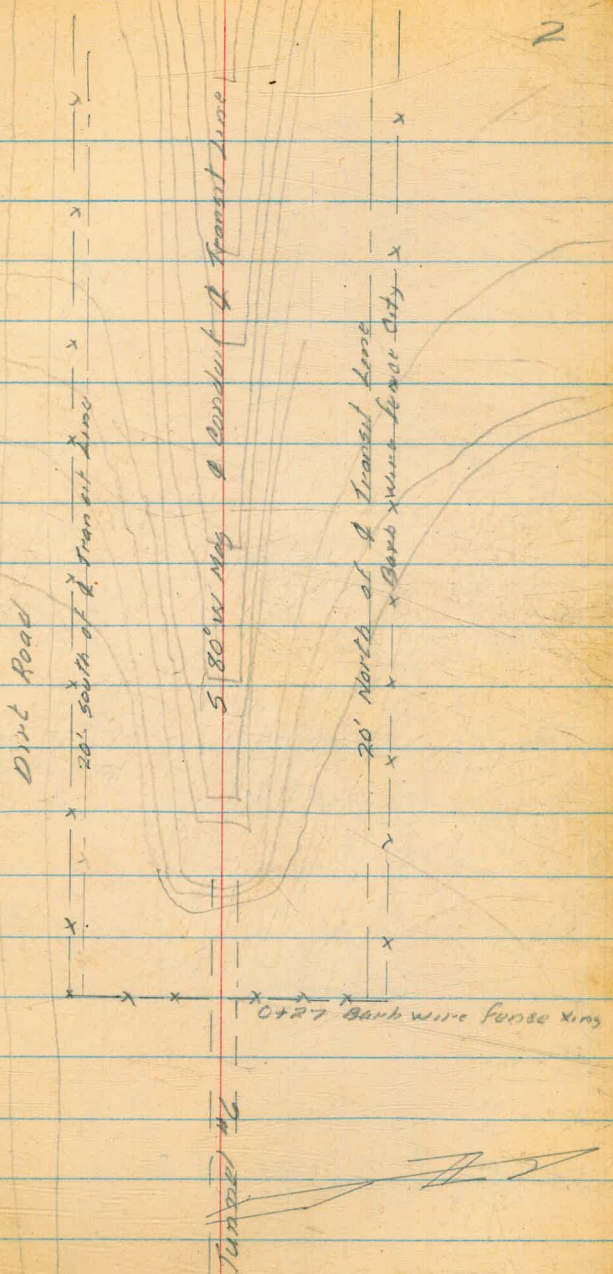 2
Dirt Road
20' South of ℄ Transit Line
S 80° W Mag ℄ Conduit ℄ Transit Line
20' North of ℄ Transit Line
Barb wire fence City
0+27 Barb wire fence xing
Tunnel #6